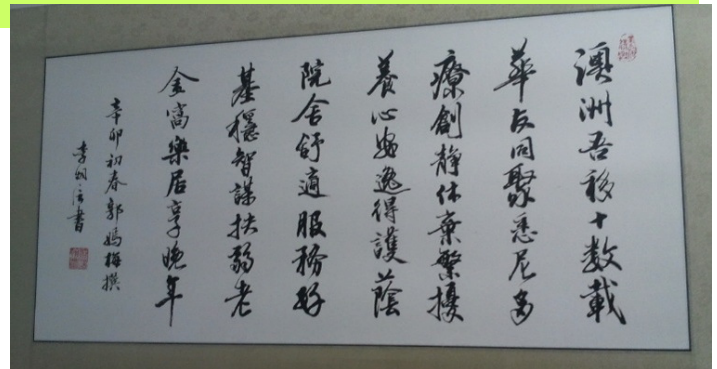 澳洲吾移十数載
華友同聚悉尼多
療創靜休棄繁擾
養心安逸得護蔭
院舍舒適服務好
基穩智謀扶弱老
金窩樂居享晚年
辛卯初春郭嫣梅撰
書